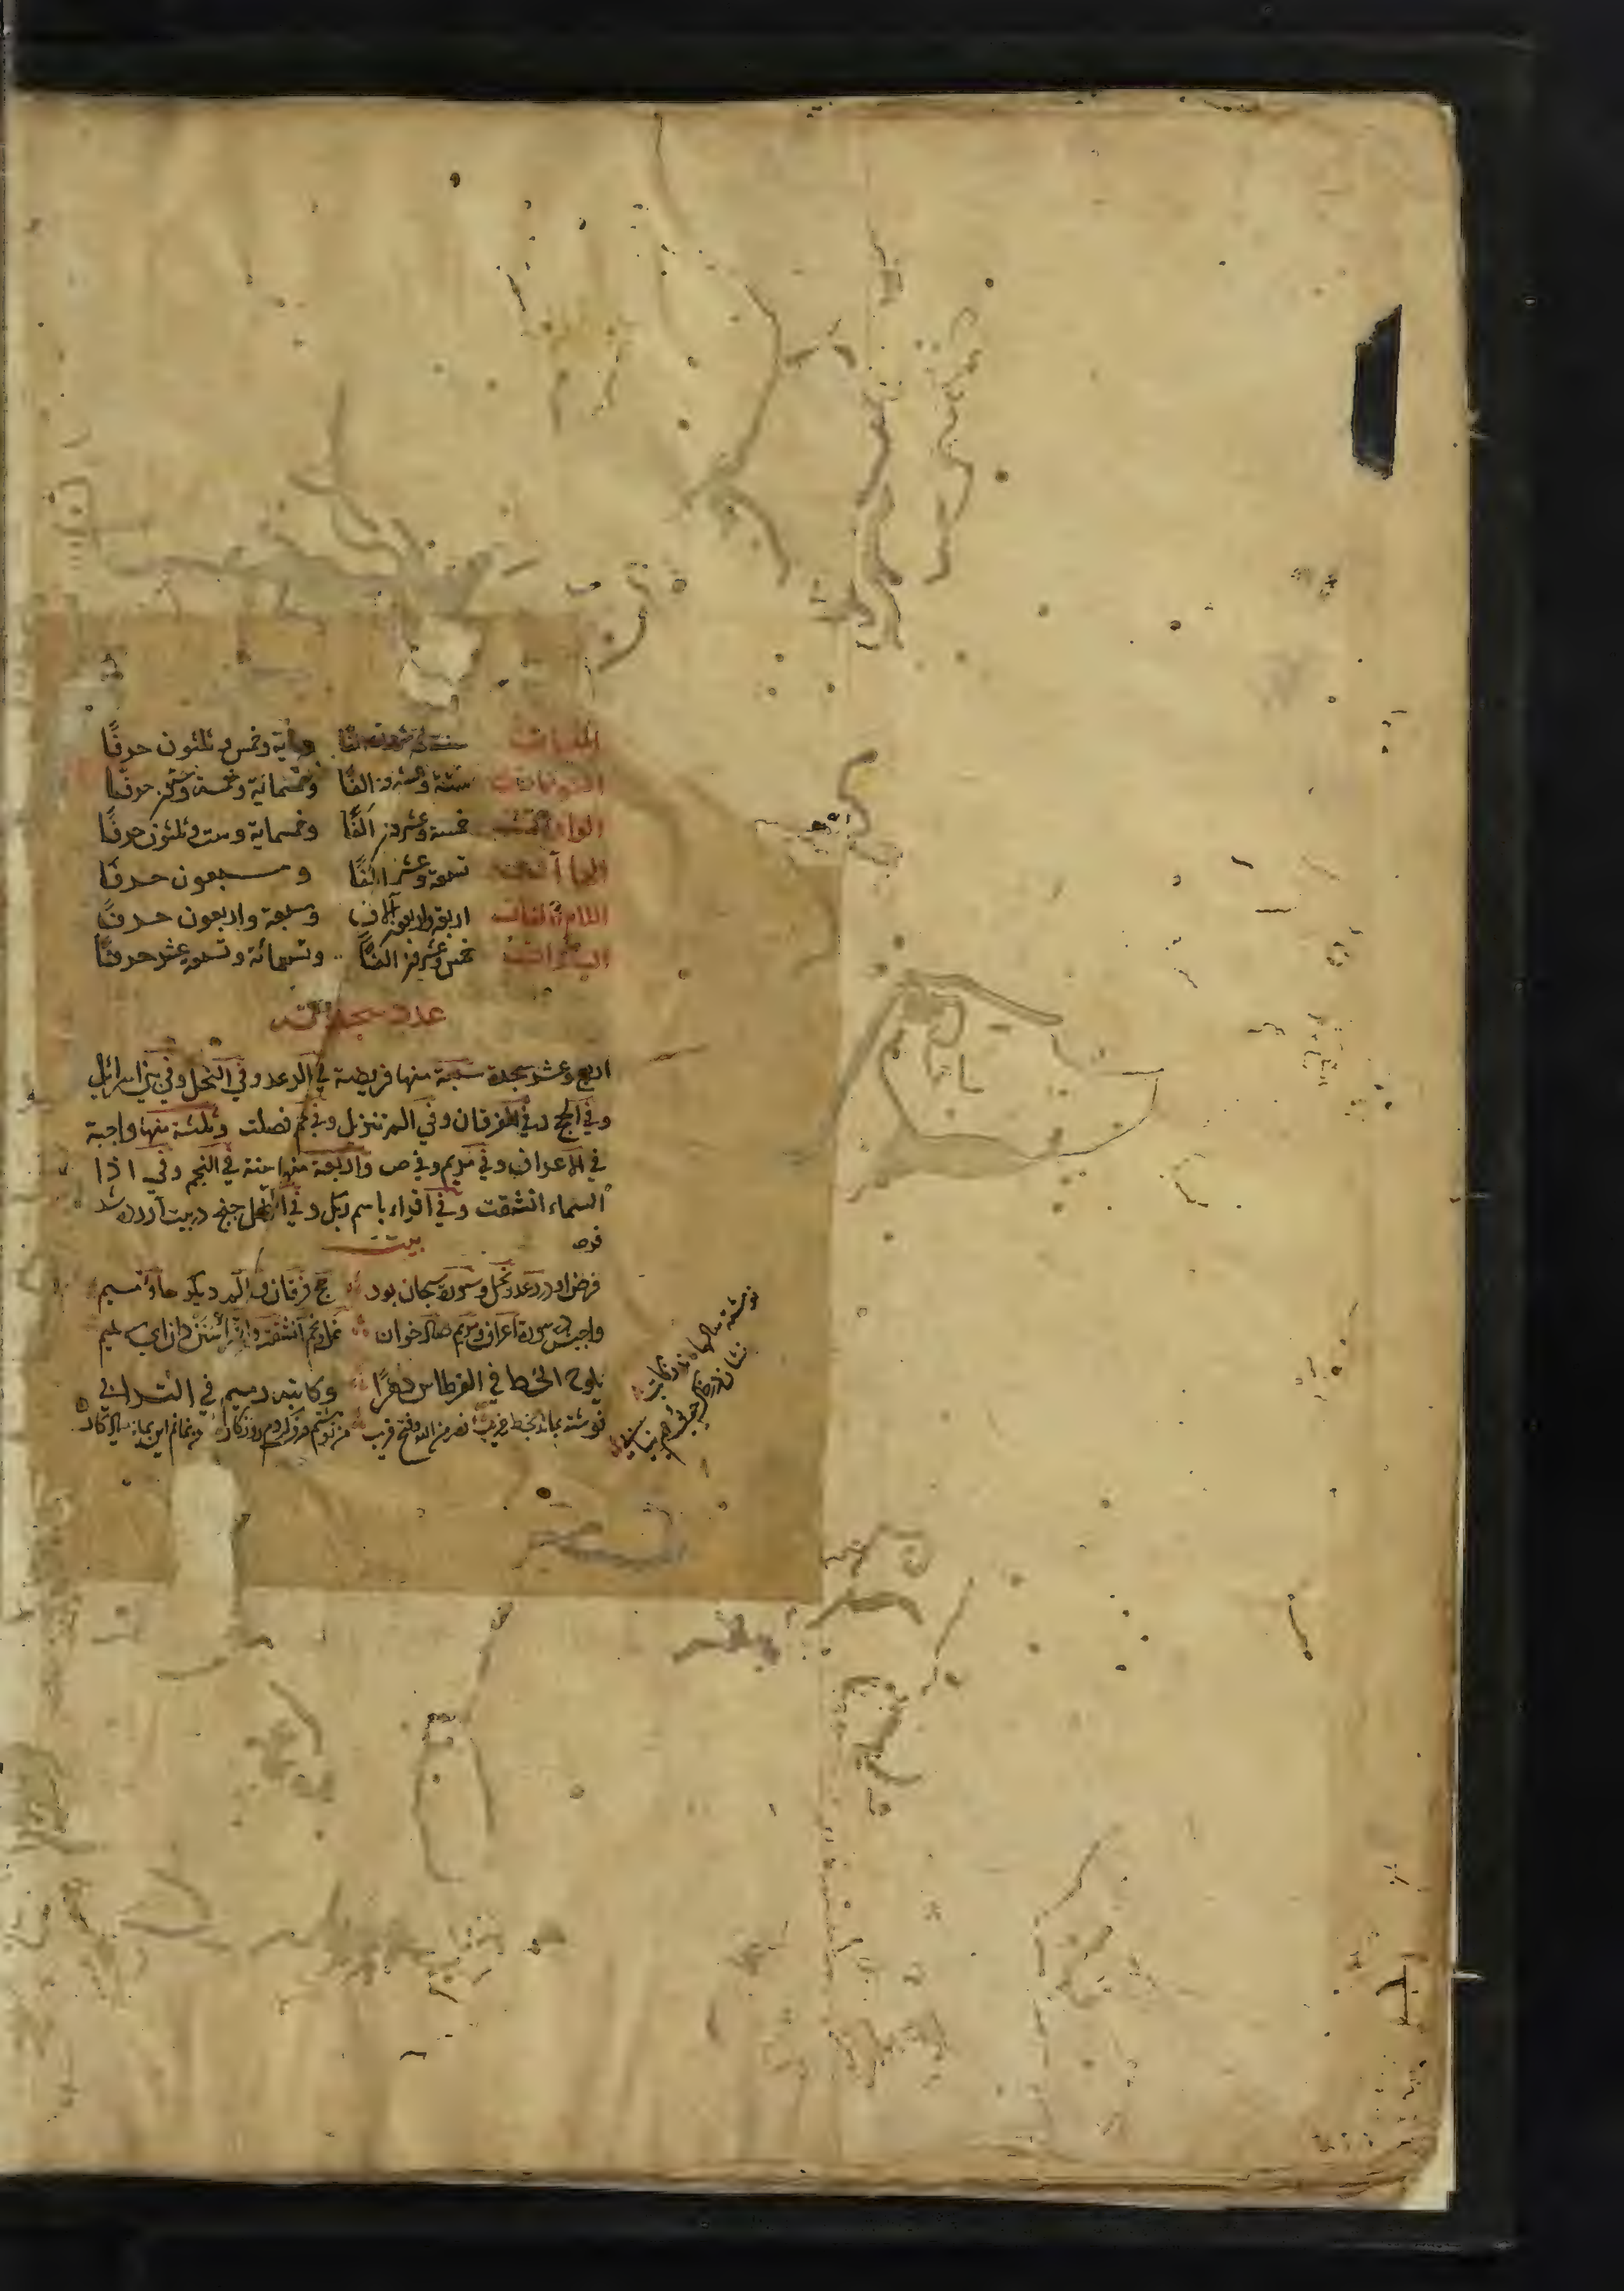 الميمات ستة وعشرون الفا ومأية وخمس و ثلثون حرفًا
النونات ستة وعشرون الفًا وخمسمائة وخمسة وعشر حرفًا
الواوات خمسة وعشرون الفًا وخمسماية وست وثلثون حرفًا
الهاآت تسعة وعشر الفًا و سبعون حرفًا
اللام الفات اربعة واربعون الاف وسبعة واربعون حرفًا
الياآت خمس وعشرون الفًا وتسعمائة وتسعة عشر حرفًا
عدد سجدات
اربع وعشر سجدة سبعة منها فريضة في الرعد وفي النحل وفي بني اسرائل
وفي الحج وفي الفرقان وفي الم تنزيل وفي حم فصلت وثلثة منها واجبة
في الاعراف وفي مريم وفي ص واربعة منها سنة في النجم وفي اذا
السماء انشقت وفي اقراء باسم ربك وفي النمل در بيت آورده شد
فرض
بيت
فرض او در رعد و نحل و سورة سبحان بود حج فرقان و الم ديكر حا و ميم
واجبش سورة اعراف و مريم صاد خوان نمل و نجم انشقت و اقرأ سنن دان اي سليم
يلوح الخط في القرطاس دهرًا وكاتبه رميم في التراب
نوشته بماند بخط غريب نصر من الله وفتح قريب من نوشتم صرف كردم روزكار من نمانم اين بماند يادكار
نوشته سالها ماند ز كاتب